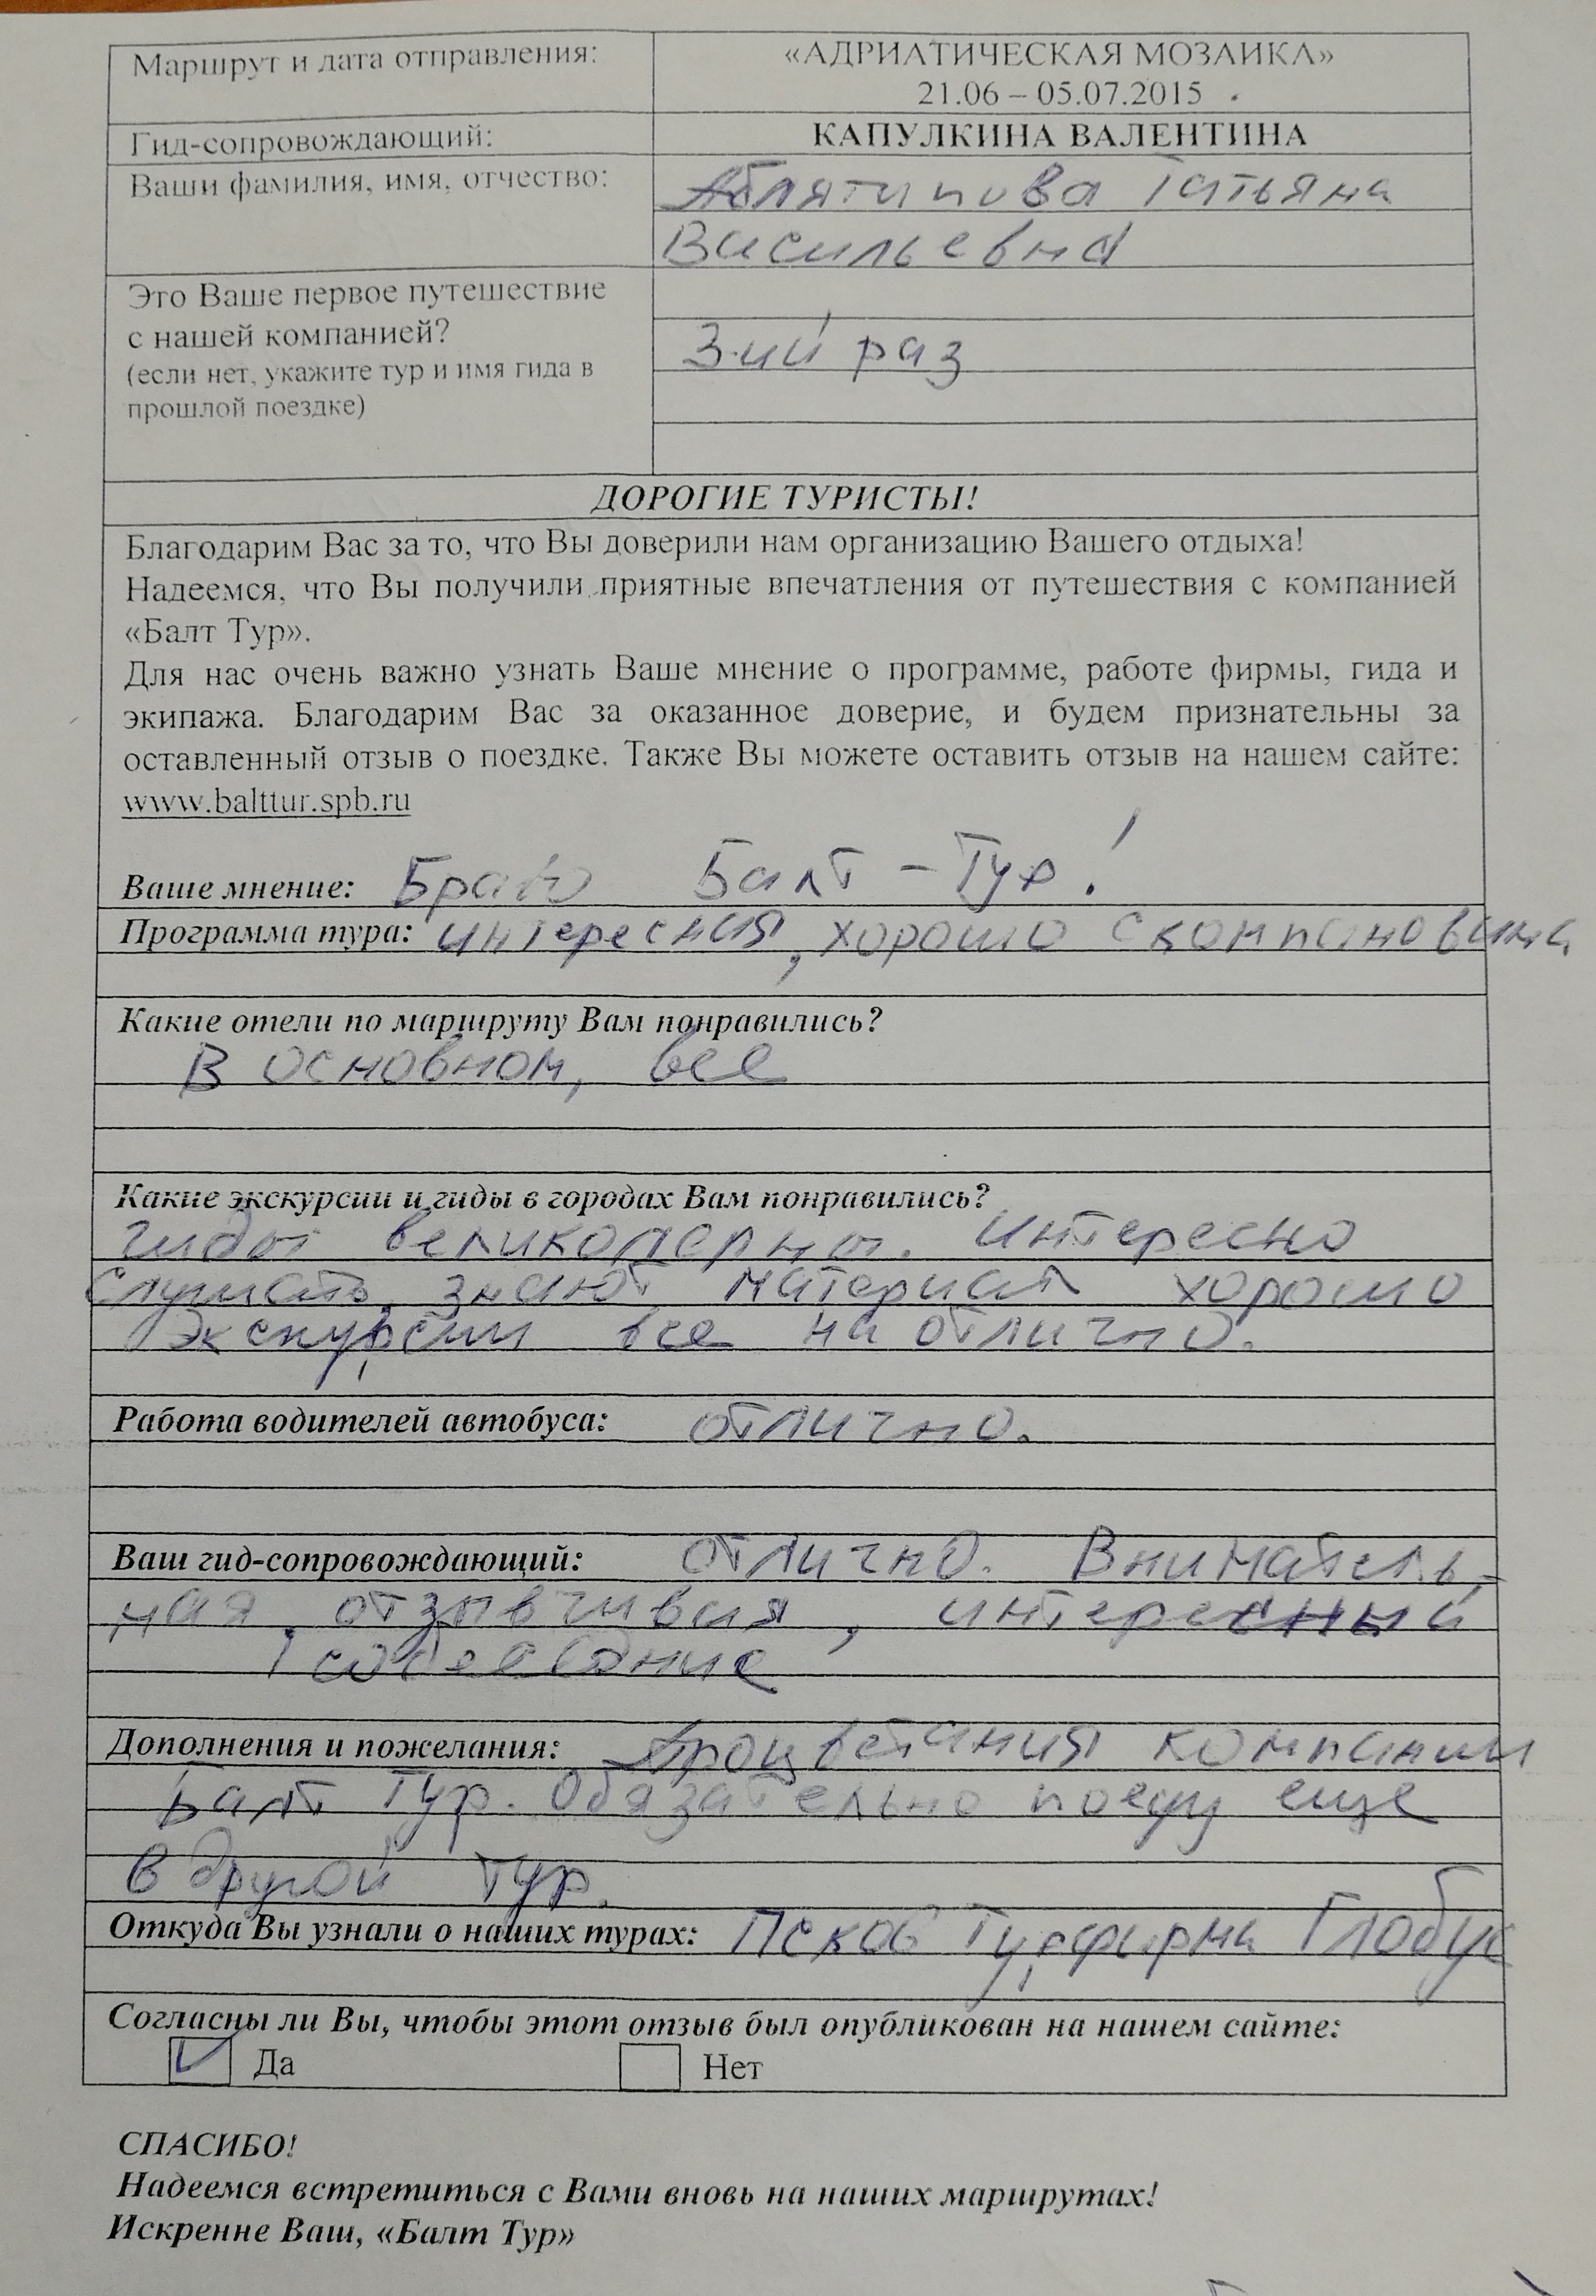 Маршрут и дата отправления:
«АДРИАТИЧЕСКАЯ МОЗАИКА»
21.06 – 05.07.2015
Гид-сопровождающий:
КАПУЛКИНА ВАЛЕНТИНА
Ваши фамилия, имя, отчество:
Аблятипова Татьяна
Васильевна
Это Ваше первое путешествие
с нашей компанией?
(если нет, укажите тур и имя гида в
прошлой поездке)
3-ий раз
ДОРОГИЕ ТУРИСТЫ!
Благодарим Вас за то, что Вы доверили нам организацию Вашего отдыха!
Надеемся, что Вы получили приятные впечатления от путешествия с компанией
«Балт Тур».
Для нас очень важно узнать Ваше мнение о программе, работе фирмы, гида и
экипажа. Благодарим Вас за оказанное доверие, и будем признательны за
оставленный отзыв о поездке. Также Вы можете оставить отзыв на нашем сайте:
www.balttur.spb.ru
Ваше мнение: Браво Балт - Тур!
Программа тура: интересная, хорошо скомпанована
Какие отели по маршруту Вам понравились?
В основном, все
Какие экскурсии и гиды в городах Вам понравились?
гиды великолепны. Интересно
слушать, знают материал хорошо
Экскурсии все на отлично.
Работа водителей автобуса: отлично.
Ваш гид-сопровождающий: отлично. Вниматель-
ная, отзывчивая, интересный
Дополнения и пожелания: Процветания компании
Балт Тур. Обязательно поеду еще
в другой тур.
Откуда Вы узнали о наших турах: Псков Турфирма Глобус
Согласны ли Вы, чтобы этот отзыв был опубликован на нашем сайте:
Да Нет
СПАСИБО!
Надеемся встретиться с Вами вновь на наших маршрутах!
Искренне Ваш, «Балт Тур»